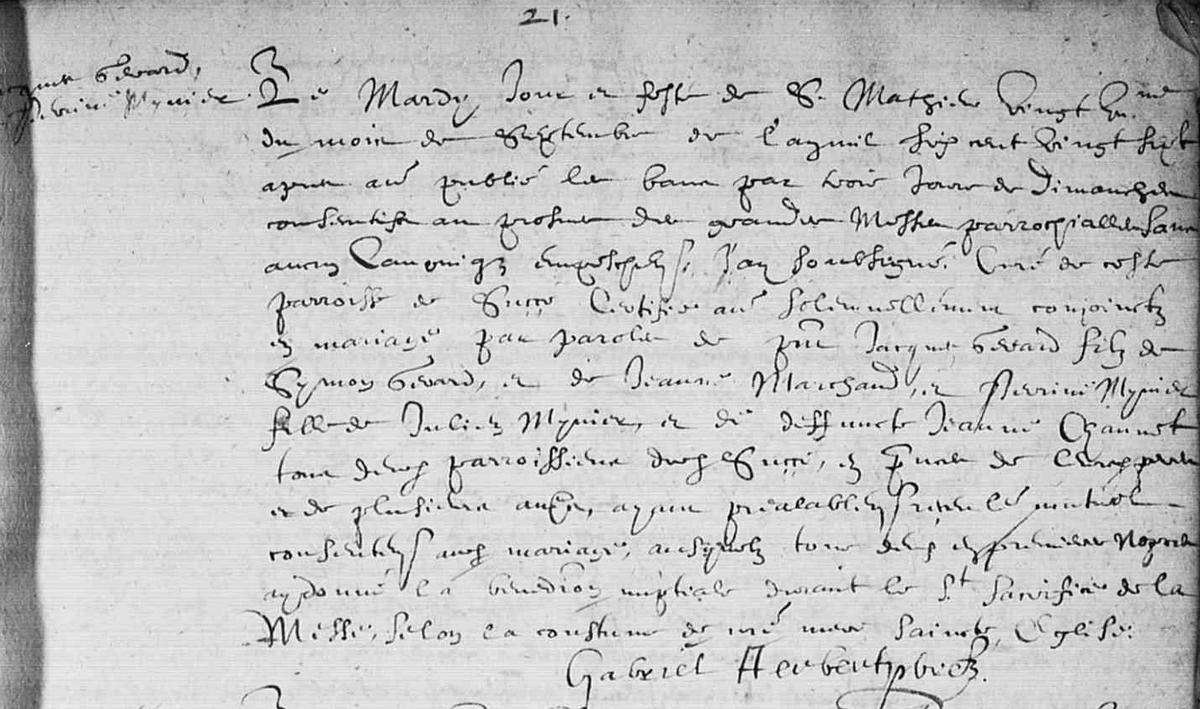 21.
Jacques Gerard,
Perrine Mynier
Le Mardy Jour et feste de St. Mathieu vingt un.me
du mois de Septembre de l'an mil six cent vingt sept
apres avoir publié les bans par trois Jours de Dimanches
consecutifs au prosne des grandes Messes parrochialles sans
aucun Canoniq empeschem. J'ay soubsigné. Curé de ceste
parroisse de Succé Certifie avoir solennellement conjoinctz
en mariage par parolles de pnt Jacques Gerard filz de
Symon Gerard, et de Jeanne Marchand, et Perrine Mynier
fille de Julien Mynier, et de deffuncte Jeanne Chauvet
tous deux parroissiens dud Succé, en de
et de plusieurs autres, ayant prealablem leur mutuel
consentem aud mariage, ausquelz tous deux en premieres Nopces
ay donné la benedion nuptiale durant le St. Sacrifice de la
Messe, selon la coustume de nre mere saincte Eglise.
Gabriel Herbert pbre.